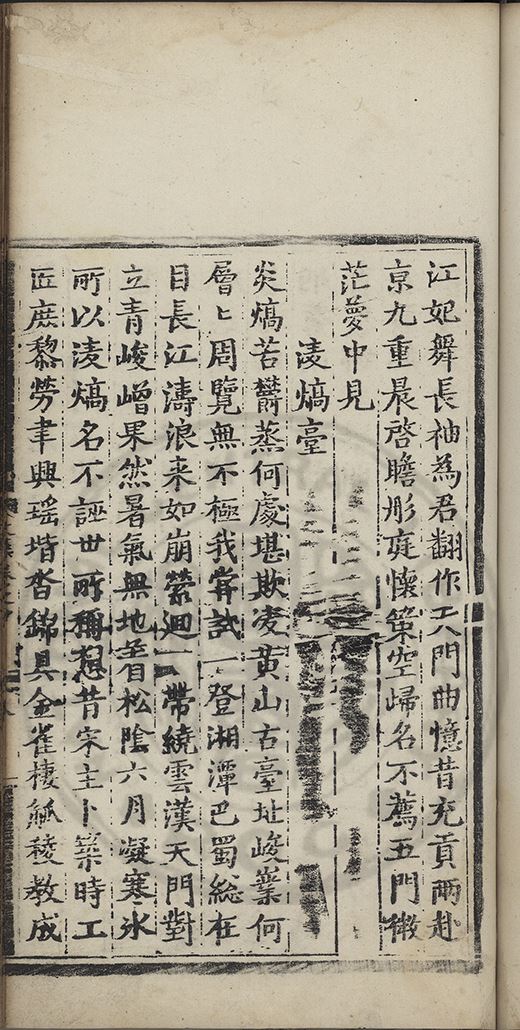 江妃舞長袖為君翻作工八門曲憶昔充貢兩赴
京九重晨啓瞻彤庭懷策空歸名不薦五門微
茫夢中見
淩熇臺
炎熇苦欝蒸何處堪欺淩黄山古臺址峻嶪何
層〻周覽無不極我嘗試一登湘潭巴蜀総在
目長江濤浪来如崩縈迴一帶繞雲漢天門對
立青崚嶒果然暑氣無地着松陰六月凝寒氷
所以淩熇名不誣世所稱想昔宋主卜築時工
匠庶黎勞聿興瑶堦沓錦具金雀棲觚稜教成